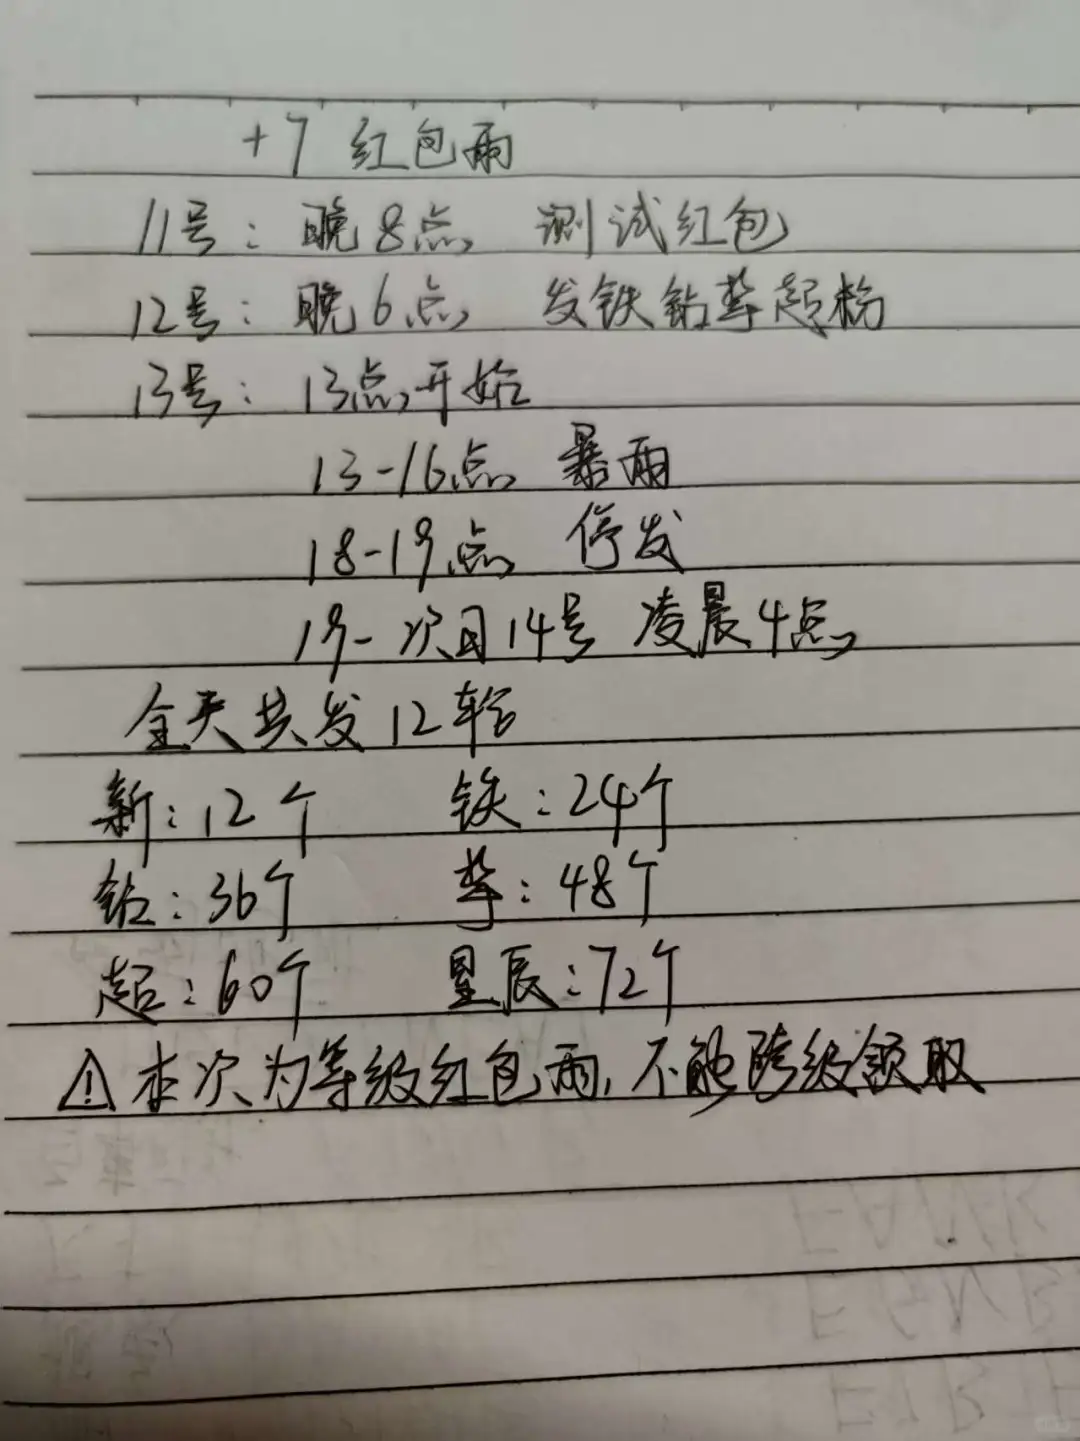 +7 红包雨
11号: 晚8点 测试红包
12号: 晚6点 发铁钻挚超粉
13号: 13点开始
13-16点 暴雨
18-19点 停发
19- 次日14号 凌晨4点
全天共发12轮
新: 12个 铁: 24个
钻: 36个 挚: 48个
超: 60个 星辰: 72个
⚠本次为等级红包雨, 不能跨级领取